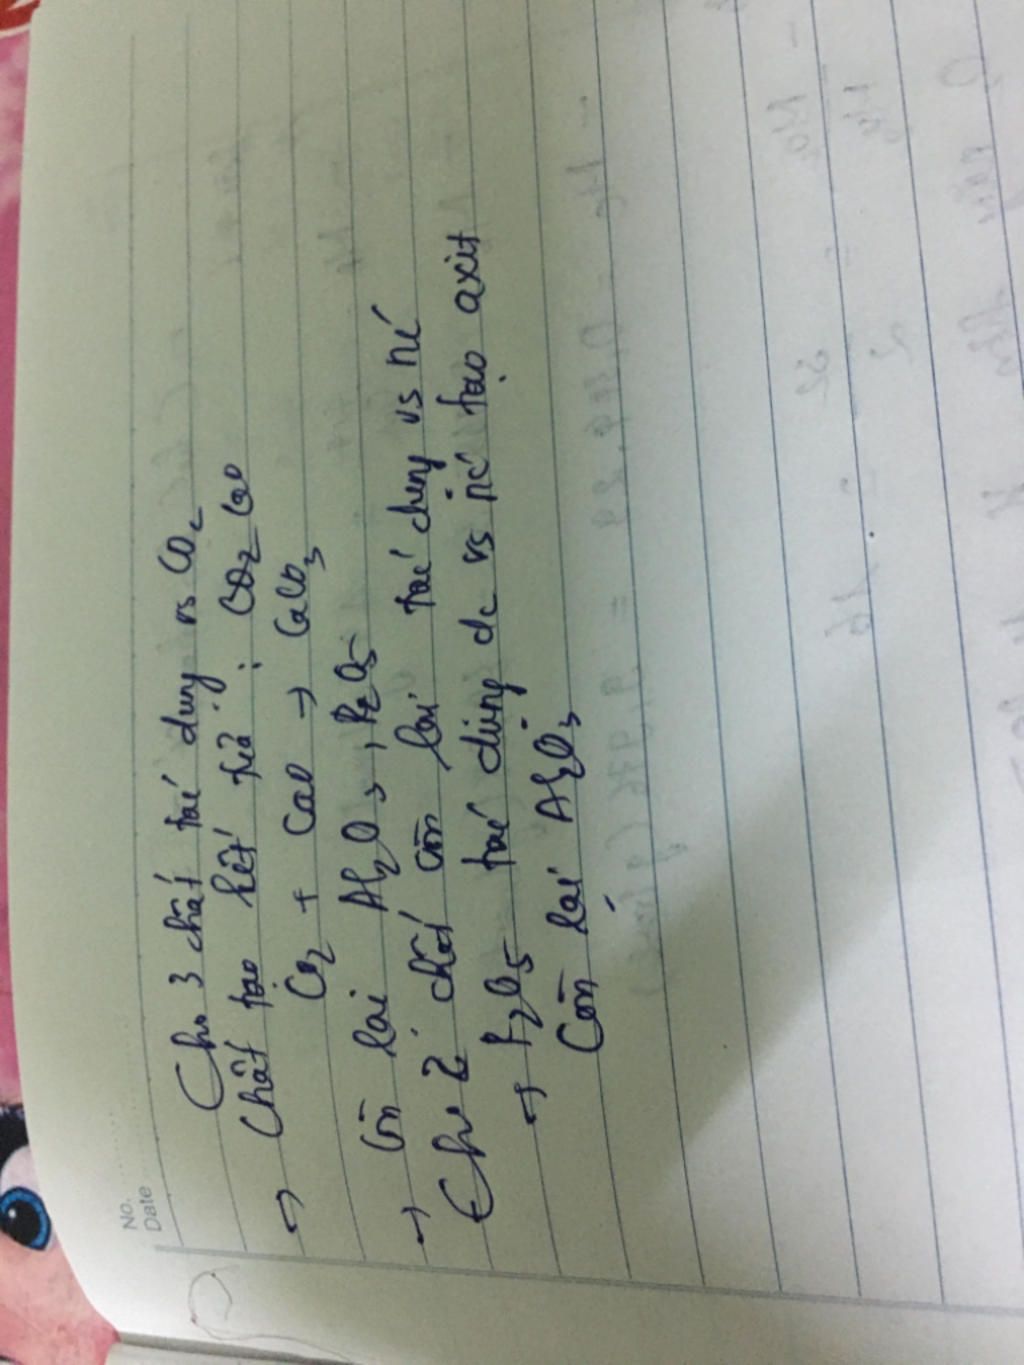 No.
Date
Cho 3 chất tác dụng vs CO2
→ Chất tạo kết tủa : CO2 CaO
CO2 + CaO → CaCO3
→ Còn lại Al2O3, P2O5
Cho 2 chất còn lại tác dụng vs nc
→ P2O5 tác dụng dc vs nc tạo axit
Còn lại Al2O3